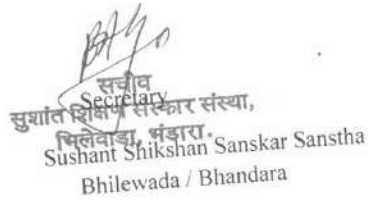 सचीव
Secretary
सुशांत शिक्षण संस्कार संस्था,
भिलेवाडा, भंडारा.
Sushant Shikshan Sanskar Sanstha
Bhilewada / Bhandara